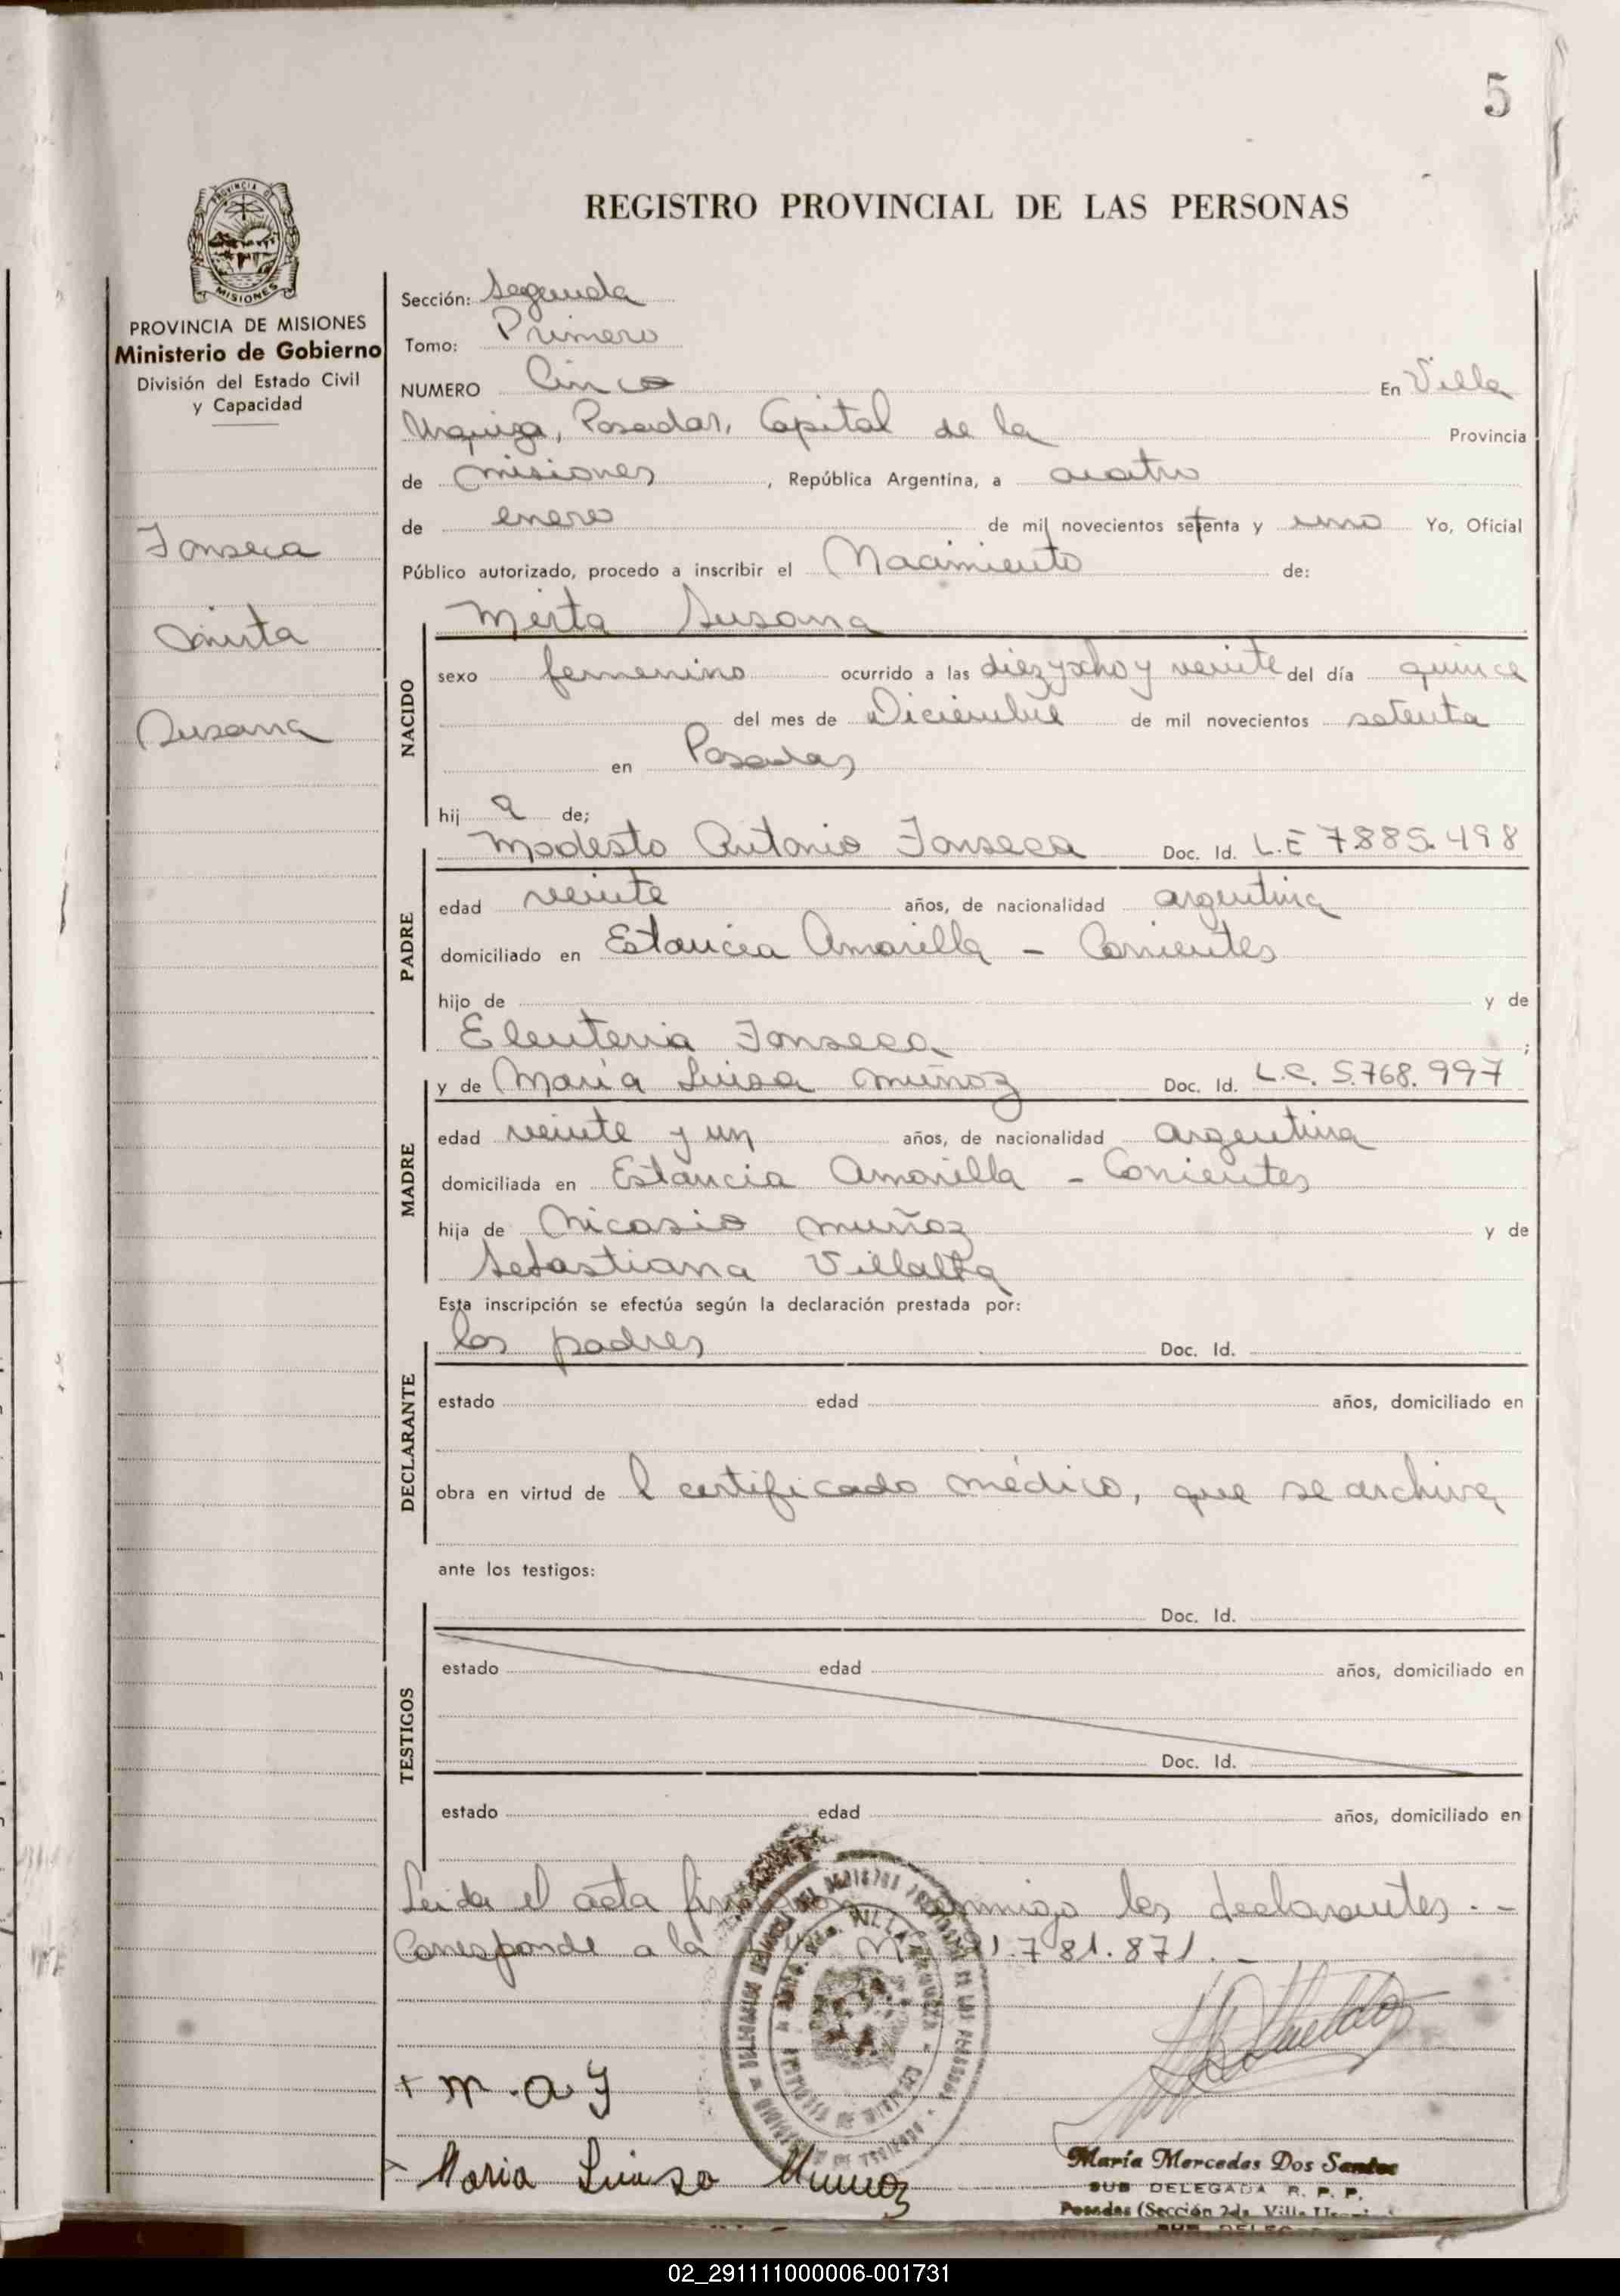 5
PROVINCIA DE
MISIONES
REGISTRO PROVINCIAL DE LAS PERSONAS
PROVINCIA DE MISIONES
Ministerio de Gobierno
División del Estado Civil
y Capacidad
Fonseca
Mirta
Susana
Sección: Segunda
Tomo: Primero
NUMERO Cinco En Villa
Urquiza, Posadas, Capital de la Provincia
de Misiones, República Argentina, a cuatro
de enero de mil novecientos setenta y uno Yo, Oficial
Público autorizado, procedo a inscribir el Nacimiento de:
NACIDO
Mirta Susana
sexo femenino ocurrido a las diez y ocho y veinte del día quince
del mes de Diciembre de mil novecientos setenta
en Posadas
hij a de;
PADRE
Modesto Antonio Fonseca Doc. Id. L.E 7.885.498
edad veinte años, de nacionalidad argentina
domiciliado en Estancia Amarilla - Corrientes
hijo de y de
Eleuteria Fonseca ;
MADRE
y de María Luisa Muñoz Doc. Id. L.C. 5.768.997
edad veinte y un años, de nacionalidad argentina
domiciliada en Estancia Amarilla - Corrientes
hija de Nicasio Muñoz y de
Sebastiana Villalba
Esta inscripción se efectúa según la declaración prestada por:
DECLARANTE
los padres Doc. Id.
estado edad años, domiciliado en
obra en virtud de l certificado médico, que se archiva
ante los testigos:
TESTIGOS
Doc. Id.
estado edad años, domiciliado en
Doc. Id.
estado edad años, domiciliado en
Leida el acta firman conmigo los declarantes. -
Corresponde a la 21.781.871. -
+ M. A. F
Maria Luisa Munoz
María Mercedes Dos Santos
SUB DELEGADA R. P. P.
Posadas (Sección 2da. Villa
02_291111000006-001731